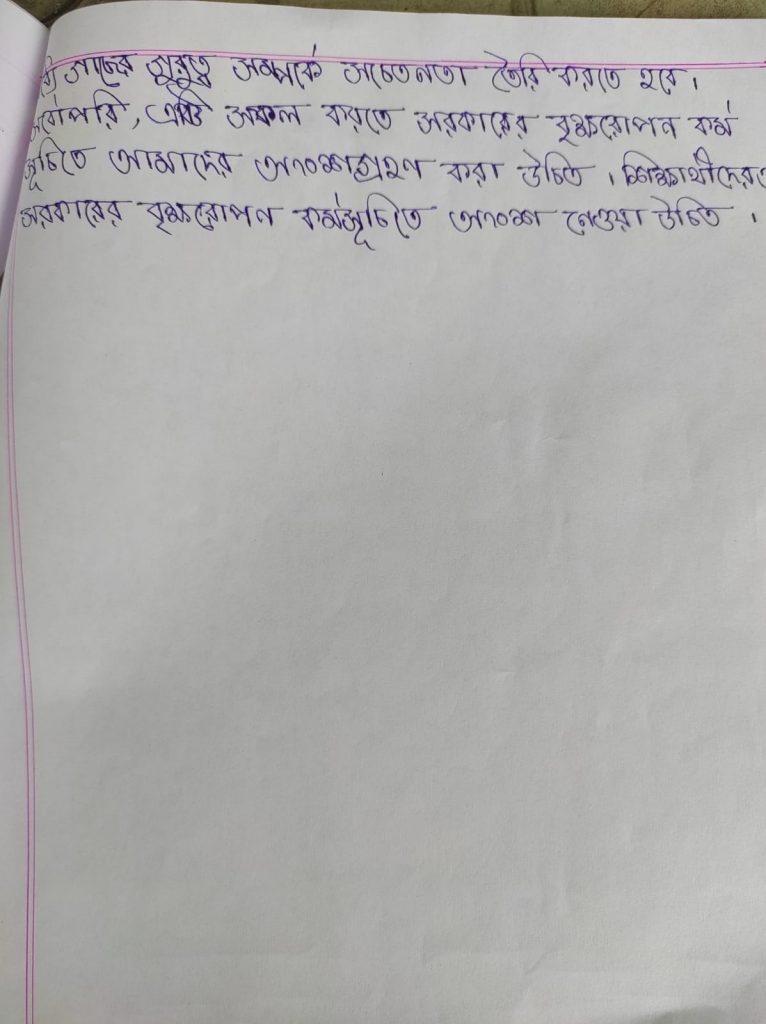 গাছের গুরুত্ব সম্পর্কে সচেতনতা তৈরি করতে হবে।
সর্বোপরি, এটি সফল করতে সরকারের বৃক্ষরোপন কর্ম
সূচিতে আমাদের অংশগ্রহণ করা উচিত। শিক্ষার্থীদেরও
সরকারের বৃক্ষরোপন কর্মসূচিতে অংশ নেওয়া উচিত।